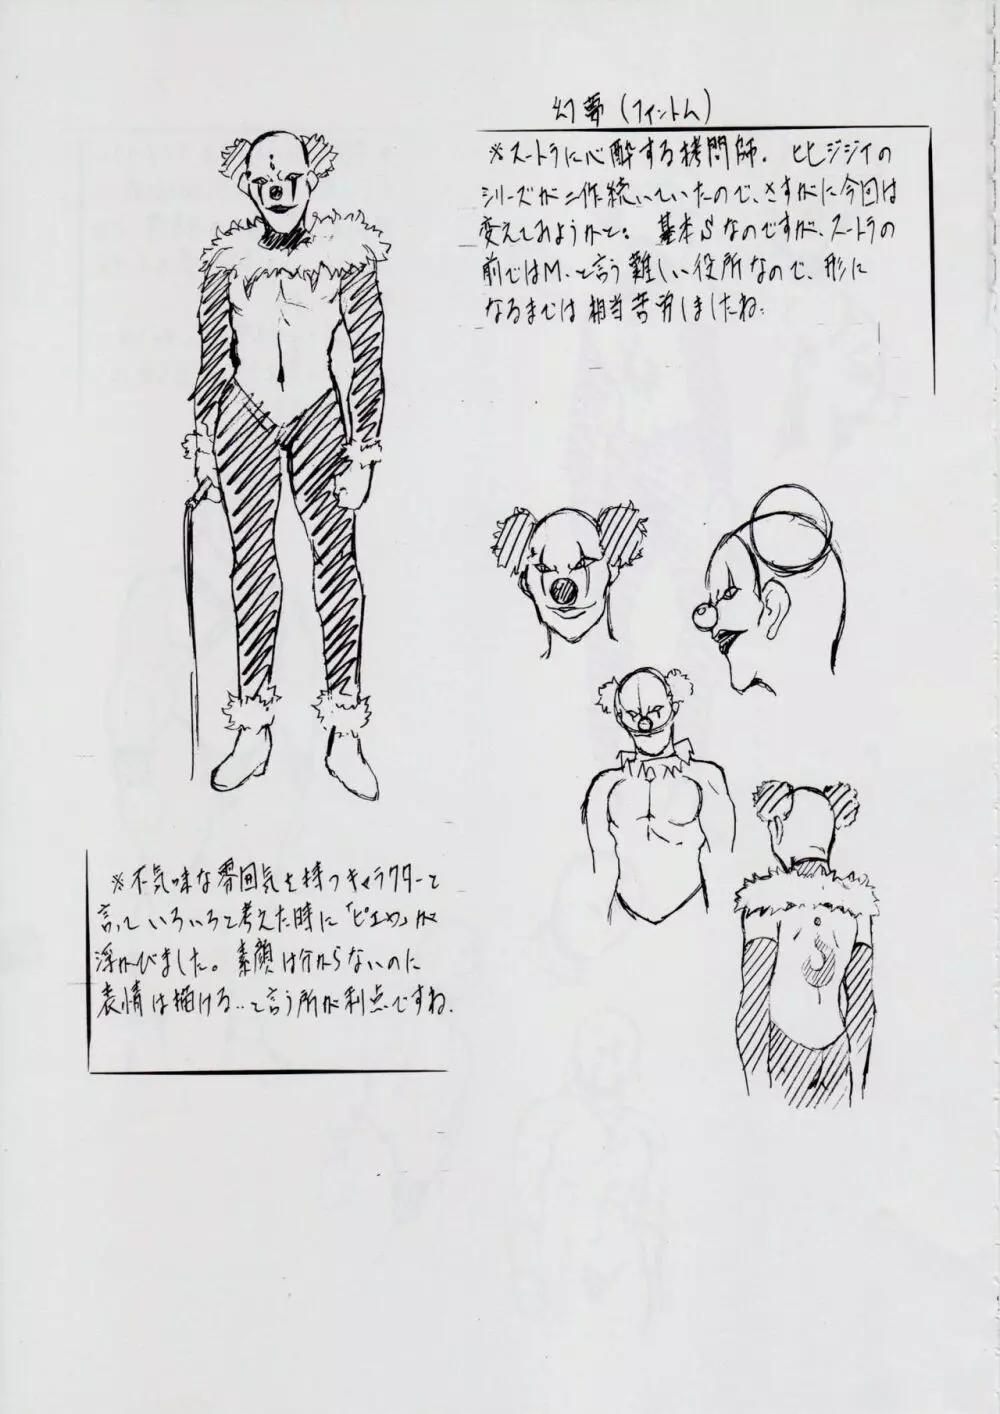 幻夢(ファントム)
※スートラに心酔する拷問師. ヒヒジジイの
シリーズが二作続いていたので、さすがに今回は
変えてみようかと。基本Sなのですが、スートラの
前ではM.と言う難しい役所なので、形に
なるまでは相当苦労しましたね.
※不気味な雰囲気を持つキャラクターと
言っていろいろと考えた時に「ピエロ」が
浮かびました。素顔は分からないのに
表情は描ける..と言う所が利点ですね.